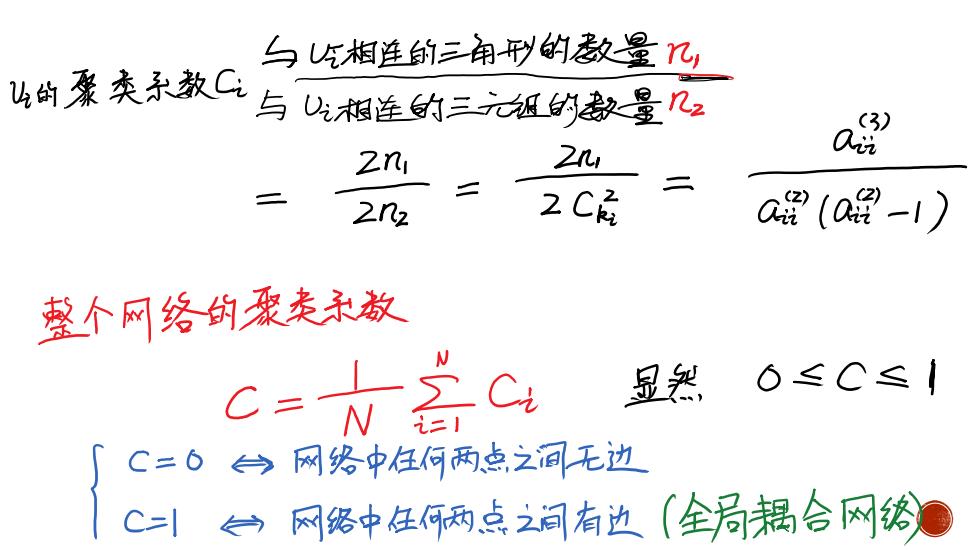 vᵢ的聚类系数Cᵢ 与vᵢ相连的三角形的数量 n₁
与vᵢ相连的三元组的数量 n₂
= 2n₁ / 2n₂ = 2n₁ / 2C²ₖᵢ = aᵢᵢ⁽³⁾ / aᵢᵢ⁽²⁾(aᵢᵢ⁽²⁾-1)
整个网络的聚类系数
C = 1/N ∑ᵢ₌₁ᴺ Cᵢ 显然 0 ≤ C ≤ 1
C=0 ⇔ 网络中任何两点之间无边
C=1 ⇔ 网络中任何两点之间有边 (全局耦合网络)